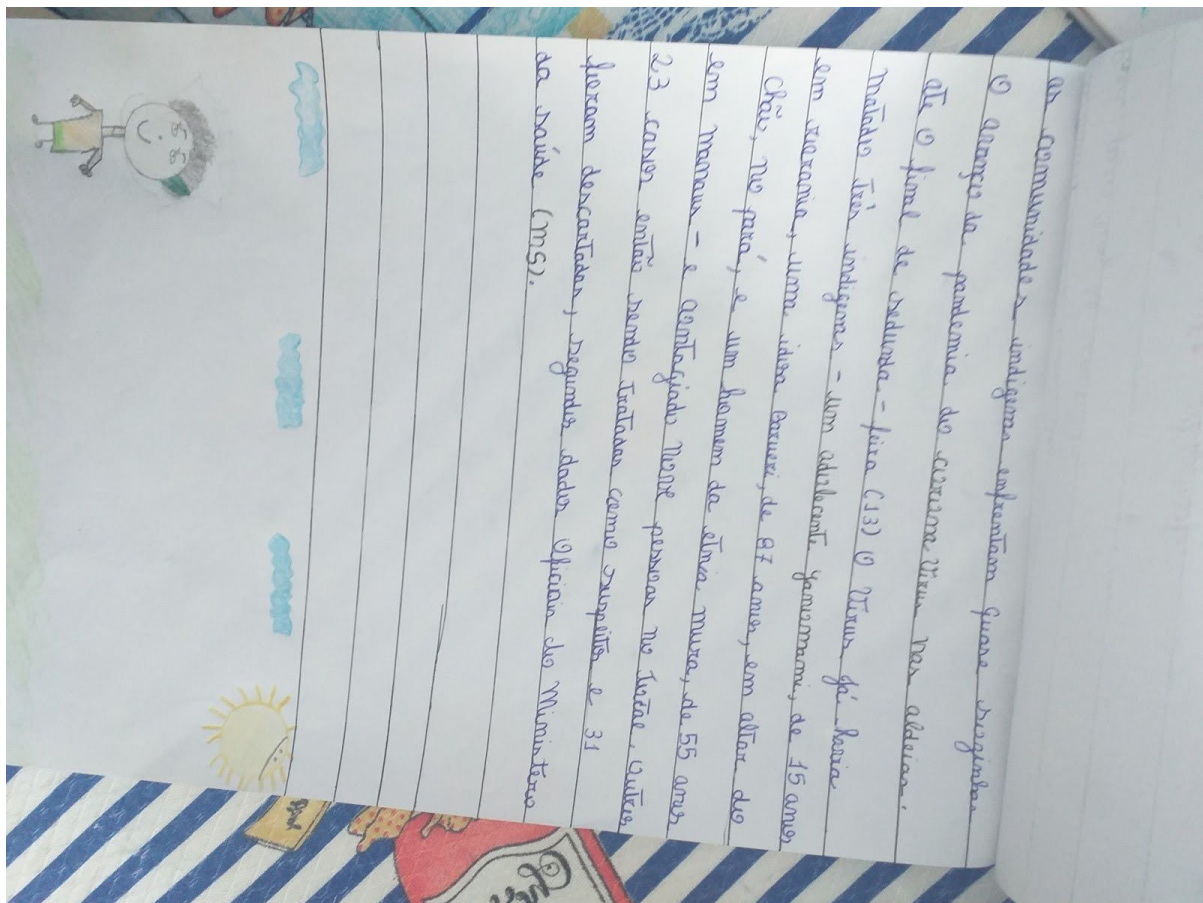 as comunidades indigenas enfrentam quase sozinhas
O avanço da pandemia do corona Virus nas aldeias.
ate O final de sedunda-feira (13) O Virus já havia
matado Três indigenas - um adolecente yanomami, de 15 anos
em roraria, uma idosa Borueri, de 87 anos, em altar do
Chão, no pará, e um homem da etnia mura, de 55 anos
em manaus - e contagiado nove pessoas no total, Outros
23 casos então sendo Tratadas como suspeitos e 31
foram descartadas, segundos dados Oficiais do Ministerio
da saúde (MS).